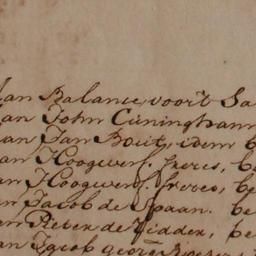 an Balance, voor't Sa
an John Cuningham
aan Jan Bouit, idem b
an Hoogwerf, freres, be
an Hoogwerf, freres, be
an Jacob de Spaan. be
an Pieter de Ridder, be
an Jacob george